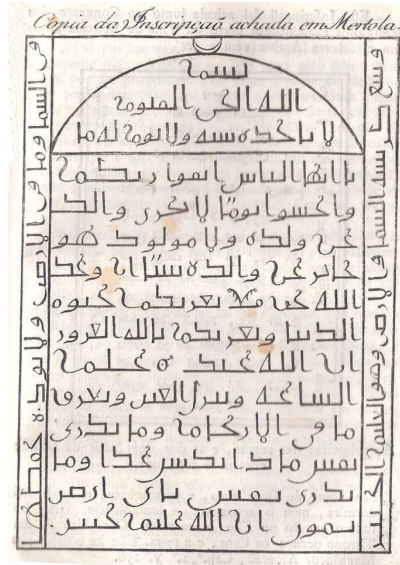 Copia da Inscripçaõ achada em Mertola.
بسم
الله الحي القيوم
لا تاخذه سنه ولا نوم له ما
يا ايها الناس اتقوا ربكم
واخشوا يوما لا يجزي والد
عن ولده ولا مولود هو
جاز عن والده شيئا ان وعد
الله حق فلا تغرنكم حيوه
الدنيا ويغرنكم بالله الغرور
ان الله عنده علم
الساعه وينزل الغيث ويعرف
ما في الارحام وما تدري
نفس ماذا تكسب غدا وما
تدري نفس باي ارض
تموت ان الله عليم خبير
وسع كرسيه السما والارض وهو
في السما وما في الارض ولا يوده حفظهما